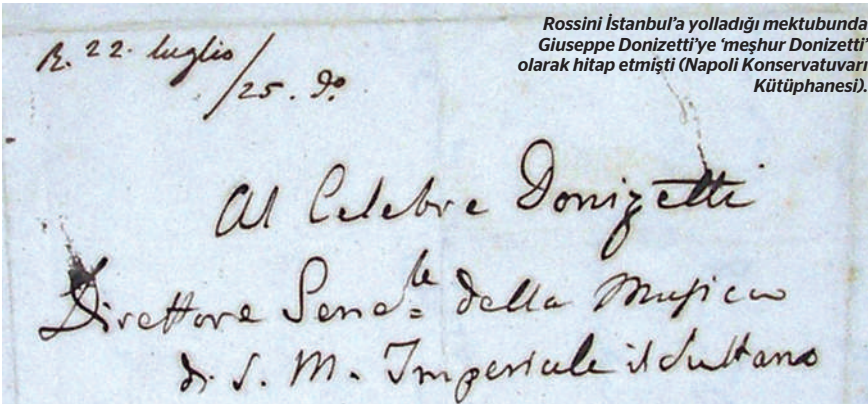 Rossini İstanbul’a yolladığı mektubunda
Giuseppe Donizetti’ye ‘meşhur Donizetti’
olarak hitap etmişti (Napoli Konservatuvarı
Kütüphanesi).
R. 22. luglio
/25. do
Al Celebre Donizetti
Direttore Gene.le della Musica
di S. M. Imperiale il Sultano